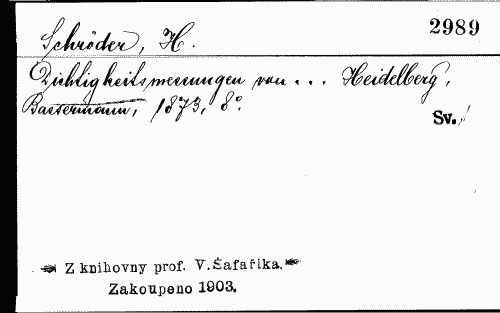 2989
Schröder, H.
Dichtigkeitsmessungen von ... Heidelberg,
Bassermann, 1873, 8°.
Sv. /
Z knihovny prof. V. Šafaříka.
Zakoupeno 1903.